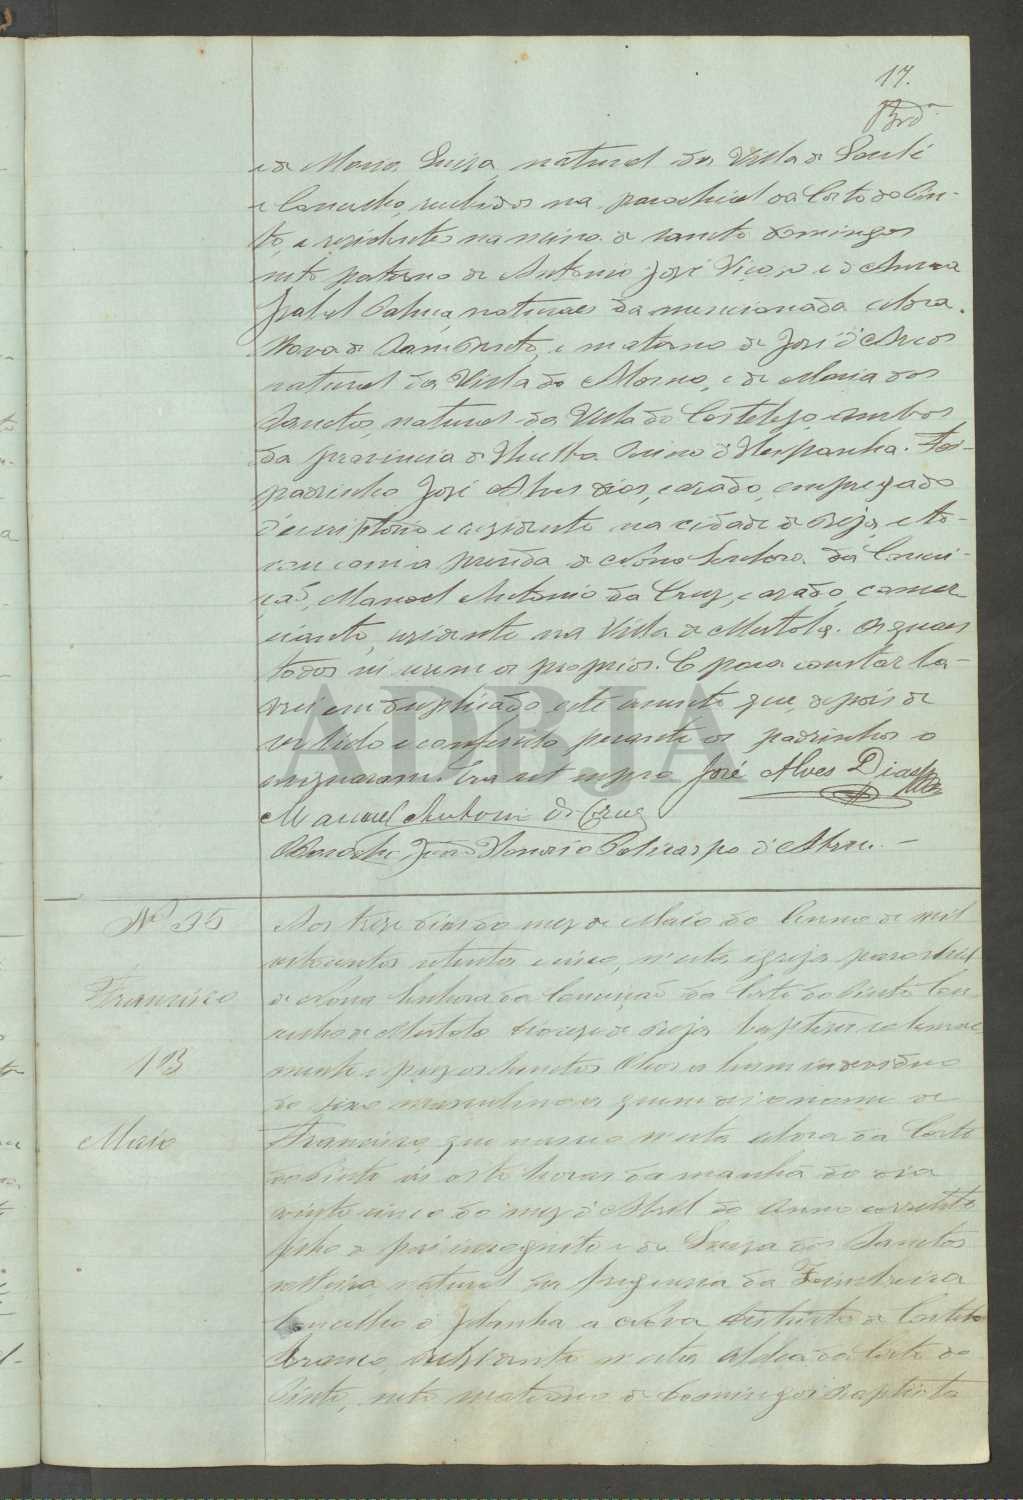 17.
e de Maria Luiza, natural da Villa de Loulé
e Concelho, recebidos na parochial da Corte do Pin-
to, e residentes na mina de Sancto Domingos
neto paterno de Antonio José Viçoso e d'Anna
Isabel Palma, naturaes da mencionada aldea
Nova de São Bento, e materno de José d'Arcos
natural da Villa do Alosno, e de Maria dos
Sanctos, natural da Villa do Castelejo, ambos
da provincia d'Huelva Reino d'Hespanha. Foi
padrinho José Alves Dias, casado, empregado
d'escriptorio e residente na cidade de Beja, e to-
cou com a prenda de Nossa Senhora da Concei-
ção, Manoel Antonio da Cruz, casado, comer-
ciante, residente na Villa de Mertola. Os quaes
todos sei serem os proprios. E para constar la-
vrei em duplicado este assento que, depois de
ser lido e conferido perante os padrinhos o
assignaram. Era ut supra José Alves Dias
Manuel Antonio da Cruz
O Parocho João Honorio Policarpo d'Abreu.
Nº 35
Francisco
13
Maio
Aos treze dias do mez de Maio do Anno de mil
oitocentos setenta e cinco, n'esta igreja parochial
de Nossa Senhora da Conceição da Corte do Pinto Con-
celho de Mertola Diocese de Beja baptizei solemne-
mente e puz os Sanctos Oleos a hum individuo
do sexo masculino a quem dei o nome de
Francisco, que nasceu n'esta aldea da Corte
do Pinto ás oito horas da manhã do dia
vinte cinco do mez d'Abril do Anno corrente
filho de pai incognito e de Luiza dos Sanctos
solteira natural da freguezia da
Concelho d'Idanha a Nova districto de Castello
Branco, residente n'esta Aldea da Corte do
Pinto, neto materno de Domingos Baptista
ADBJA